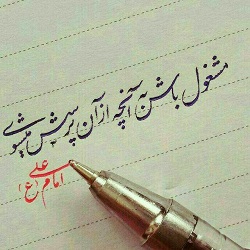 مشغول باش به آنچه از آن پرسش میشوی
امام علی (ع)